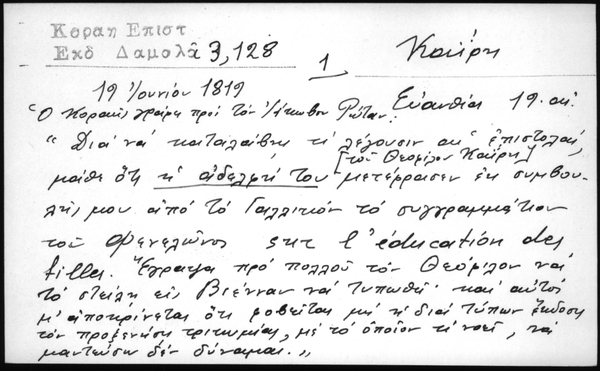 Κοραη Επιστ
Εκδ Δαμαλᾶ 3,128
1
Καΐρη
19 Ἰουνίου 1819
Εὐανθία 19. αἰ.
Ὁ Κοραῆς γράφει πρὸς τὸν Ἰάκωβον Ρώταν:
"Διὰ νὰ καταλάβῃς τί λέγουσιν αἱ ἐπιστολαί,
[τοῦ Θεοφίλου Καΐρη]
μάθε ὅτι ἡ ἀδελφή του μετέφρασεν ἐκ συμβου-
λῆς μου ἀπὸ τὸ Γαλλικὸν τὸ συγγραμμάτιον
τοῦ Φενελῶνος sur l'éducation des
filles. Ἔγραψα πρὸ πολλοῦ τὸν Θεόφιλον νὰ
τὸ στείλῃ εἰς Βιένναν νὰ τυπωθῇ· καὶ αὐτὸς
μ' ἀποκρίνεται ὅτι φοβεῖται μὴ ἡ διὰ τύπων ἔκδοση
τὸν προξενήσῃ τρικυμίας, μὲ τὸ ὁποῖον τί νοεῖ, νὰ
μαντεύσω δὲν δύναμαι."